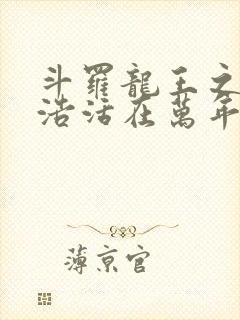 斗羅龍王之
浩活在萬年
薄京官